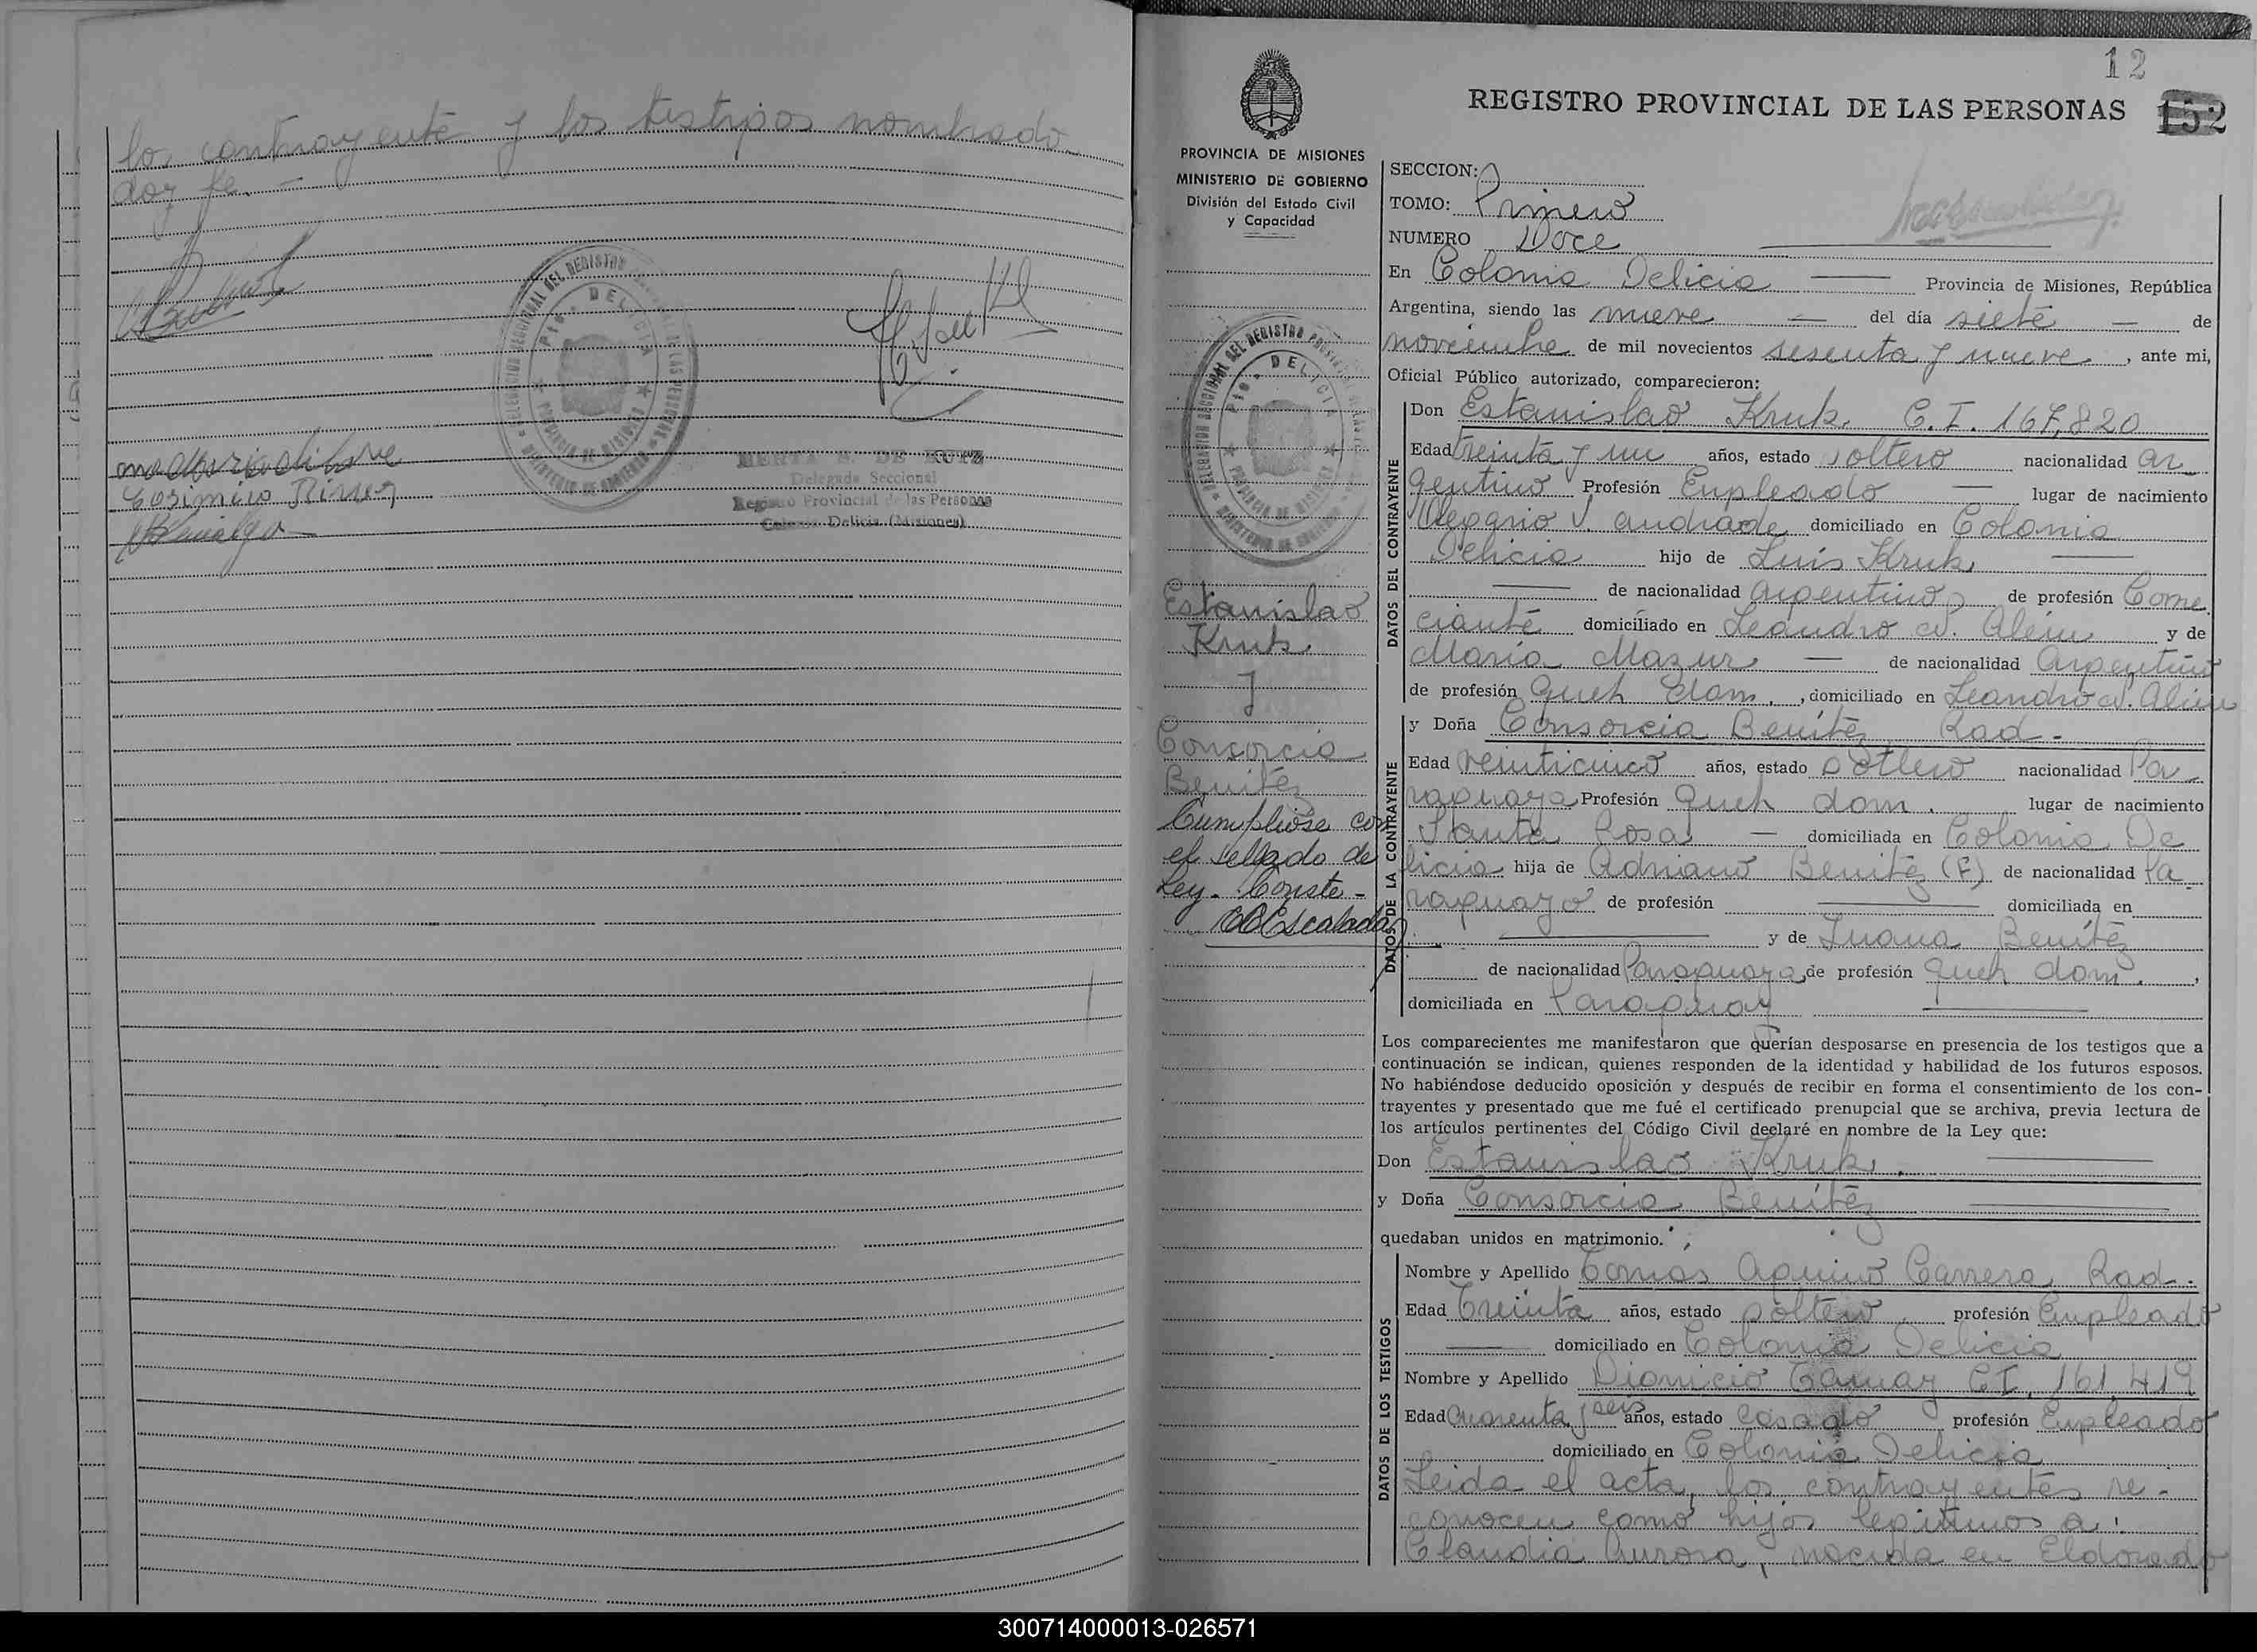 los contrayente y los testigos nombrado
doy fe. —
DELEGACION SECCIONAL DEL REGISTRO PROVINCIAL DE LAS PERSONAS
Pto. DELICIA
PROVINCIA DE MISIONES
MINISTERIO DE GOBIERNO
Delegada Seccional
Registro Provincial de las Personas
Colonia Delicia (Misiones)
12
REGISTRO PROVINCIAL DE LAS PERSONAS 152
PROVINCIA DE MISIONES
MINISTERIO DE GOBIERNO
División del Estado Civil
y Capacidad
DELEGACION SECCIONAL DEL REGISTRO PROVINCIAL DE LAS PERSONAS
Pto. DELICIA
PROVINCIA DE MISIONES
MINISTERIO DE GOBIERNO
Estanislao
Kruk
y
Consorcia
Benítez
Cumpliose con
el sellado de
Ley. Conste -
SECCION:
TOMO: Primero
NUMERO Doce
En Colonia Delicia — Provincia de Misiones, República
Argentina, siendo las nueve — del día siete — de
noviembre de mil novecientos sesenta y nueve, ante mi,
Oficial Público autorizado, comparecieron:
DATOS DEL CONTRAYENTE
Don Estanislao Kruk. C.I. 167,820
Edad treinta y un años, estado soltero nacionalidad Ar
gentino Profesión Empleado — lugar de nacimiento
Olegario V. Andrade domiciliado en Colonia
Delicia hijo de Luis Kruk —
— de nacionalidad Argentino de profesión Comer
ciante domiciliado en Leandro N. Alem y de
Maria Mazur — de nacionalidad Argentino
de profesión Queh dom., domiciliado en Leandro N. Alem
DATOS DE LA CONTRAYENTE
y Doña Consorcia Benítez Rad.-
Edad veinticinco años, estado soltero nacionalidad Pa
raguaya Profesión Queh dom. lugar de nacimiento
Santa Rosa — domiciliada en Colonia De
licia hija de Adriano Benítez (F) de nacionalidad Pa
raguayo de profesión — domiciliada en
— y de Juana Benítez
de nacionalidad Paraguaya de profesión queh dom.,
domiciliada en Paraguay —
Los comparecientes me manifestaron que querían desposarse en presencia de los testigos que a
continuación se indican, quienes responden de la identidad y habilidad de los futuros esposos.
No habiéndose deducido oposición y después de recibir en forma el consentimiento de los con-
trayentes y presentado que me fué el certificado prenupcial que se archiva, previa lectura de
los artículos pertinentes del Código Civil declaré en nombre de la Ley que:
Don Estanislao Kruk. —
y Doña Consorcia Benítez —
quedaban unidos en matrimonio.
DATOS DE LOS TESTIGOS
Nombre y Apellido Tomas Aquino Carrera Rad.-
Edad Treinta años, estado soltero profesión Empleado
— domiciliado en Colonia Delicia
Nombre y Apellido Dionicio Tamay C.I. 161.419
Edad cuarenta y seis años, estado Casado profesión Empleado
domiciliado en Colonia Delicia
Leida el acta, los contrayentes re-
conocen como hijos legitimos a:
Claudia Aurora, nacida en Eldorado
300714000013-026571